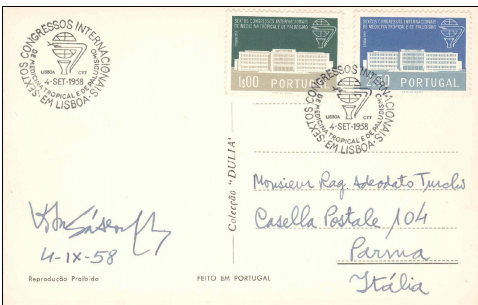 SEXTOS CONGRESSOS INTERNACIONAIS
DE MEDICINA TROPICAL E DE PALUDISMO
LISBOA CTT
4-SET-1958
EM LISBOA
SEXTOS CONGRESSOS INTERNACIONAIS
DE MEDICINA TROPICAL E DE PALUDISMO
1$00 PORTUGAL
SEXTOS CONGRESSOS INTERNACIONAIS
DE MEDICINA TROPICAL E DE PALUDISMO
PORTUGAL
SEXTOS CONGRESSOS INTERNACIONAIS
DE MEDICINA TROPICAL E DE PALUDISMO
LISBOA CTT
4-SET-1958
EM LISBOA
Colecção "DULIA"
Monsieur Rag. Adeodato
Casella Postale 104
Parma
Itália
4-IX-58
Reprodução Proibida
FEITO EM PORTUGAL